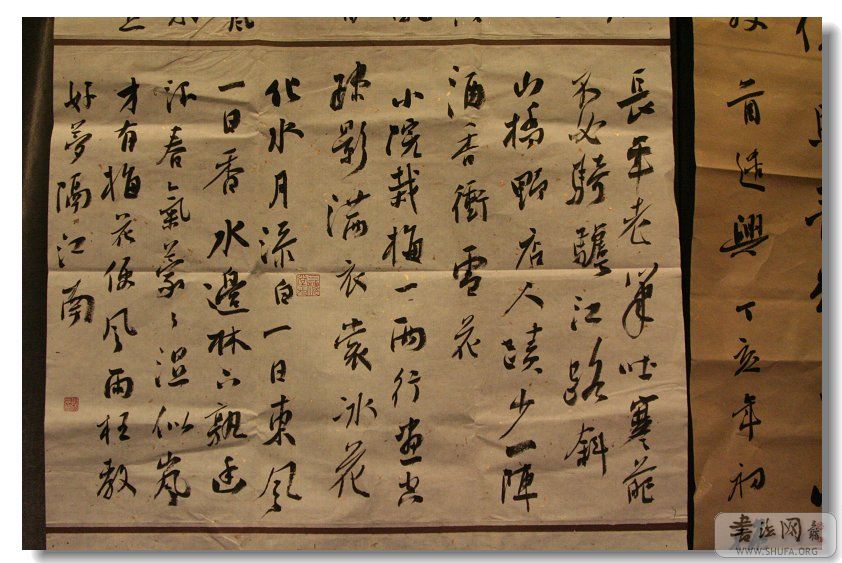 首遣興丁亥年初
長年老筆吐寒葩
不必騎驢江路斜
山橋野店人蹟少一陣
酒香衝雪花
小院栽梅一兩行畫空
疎影滿衣裳冰花
化水月添白一日東風
一日香水邊林下
春氣蒙〻濕似嵐
才有梅花便風雨枉教
好夢隔江南
书法网
WWW.SHUFA.ORG